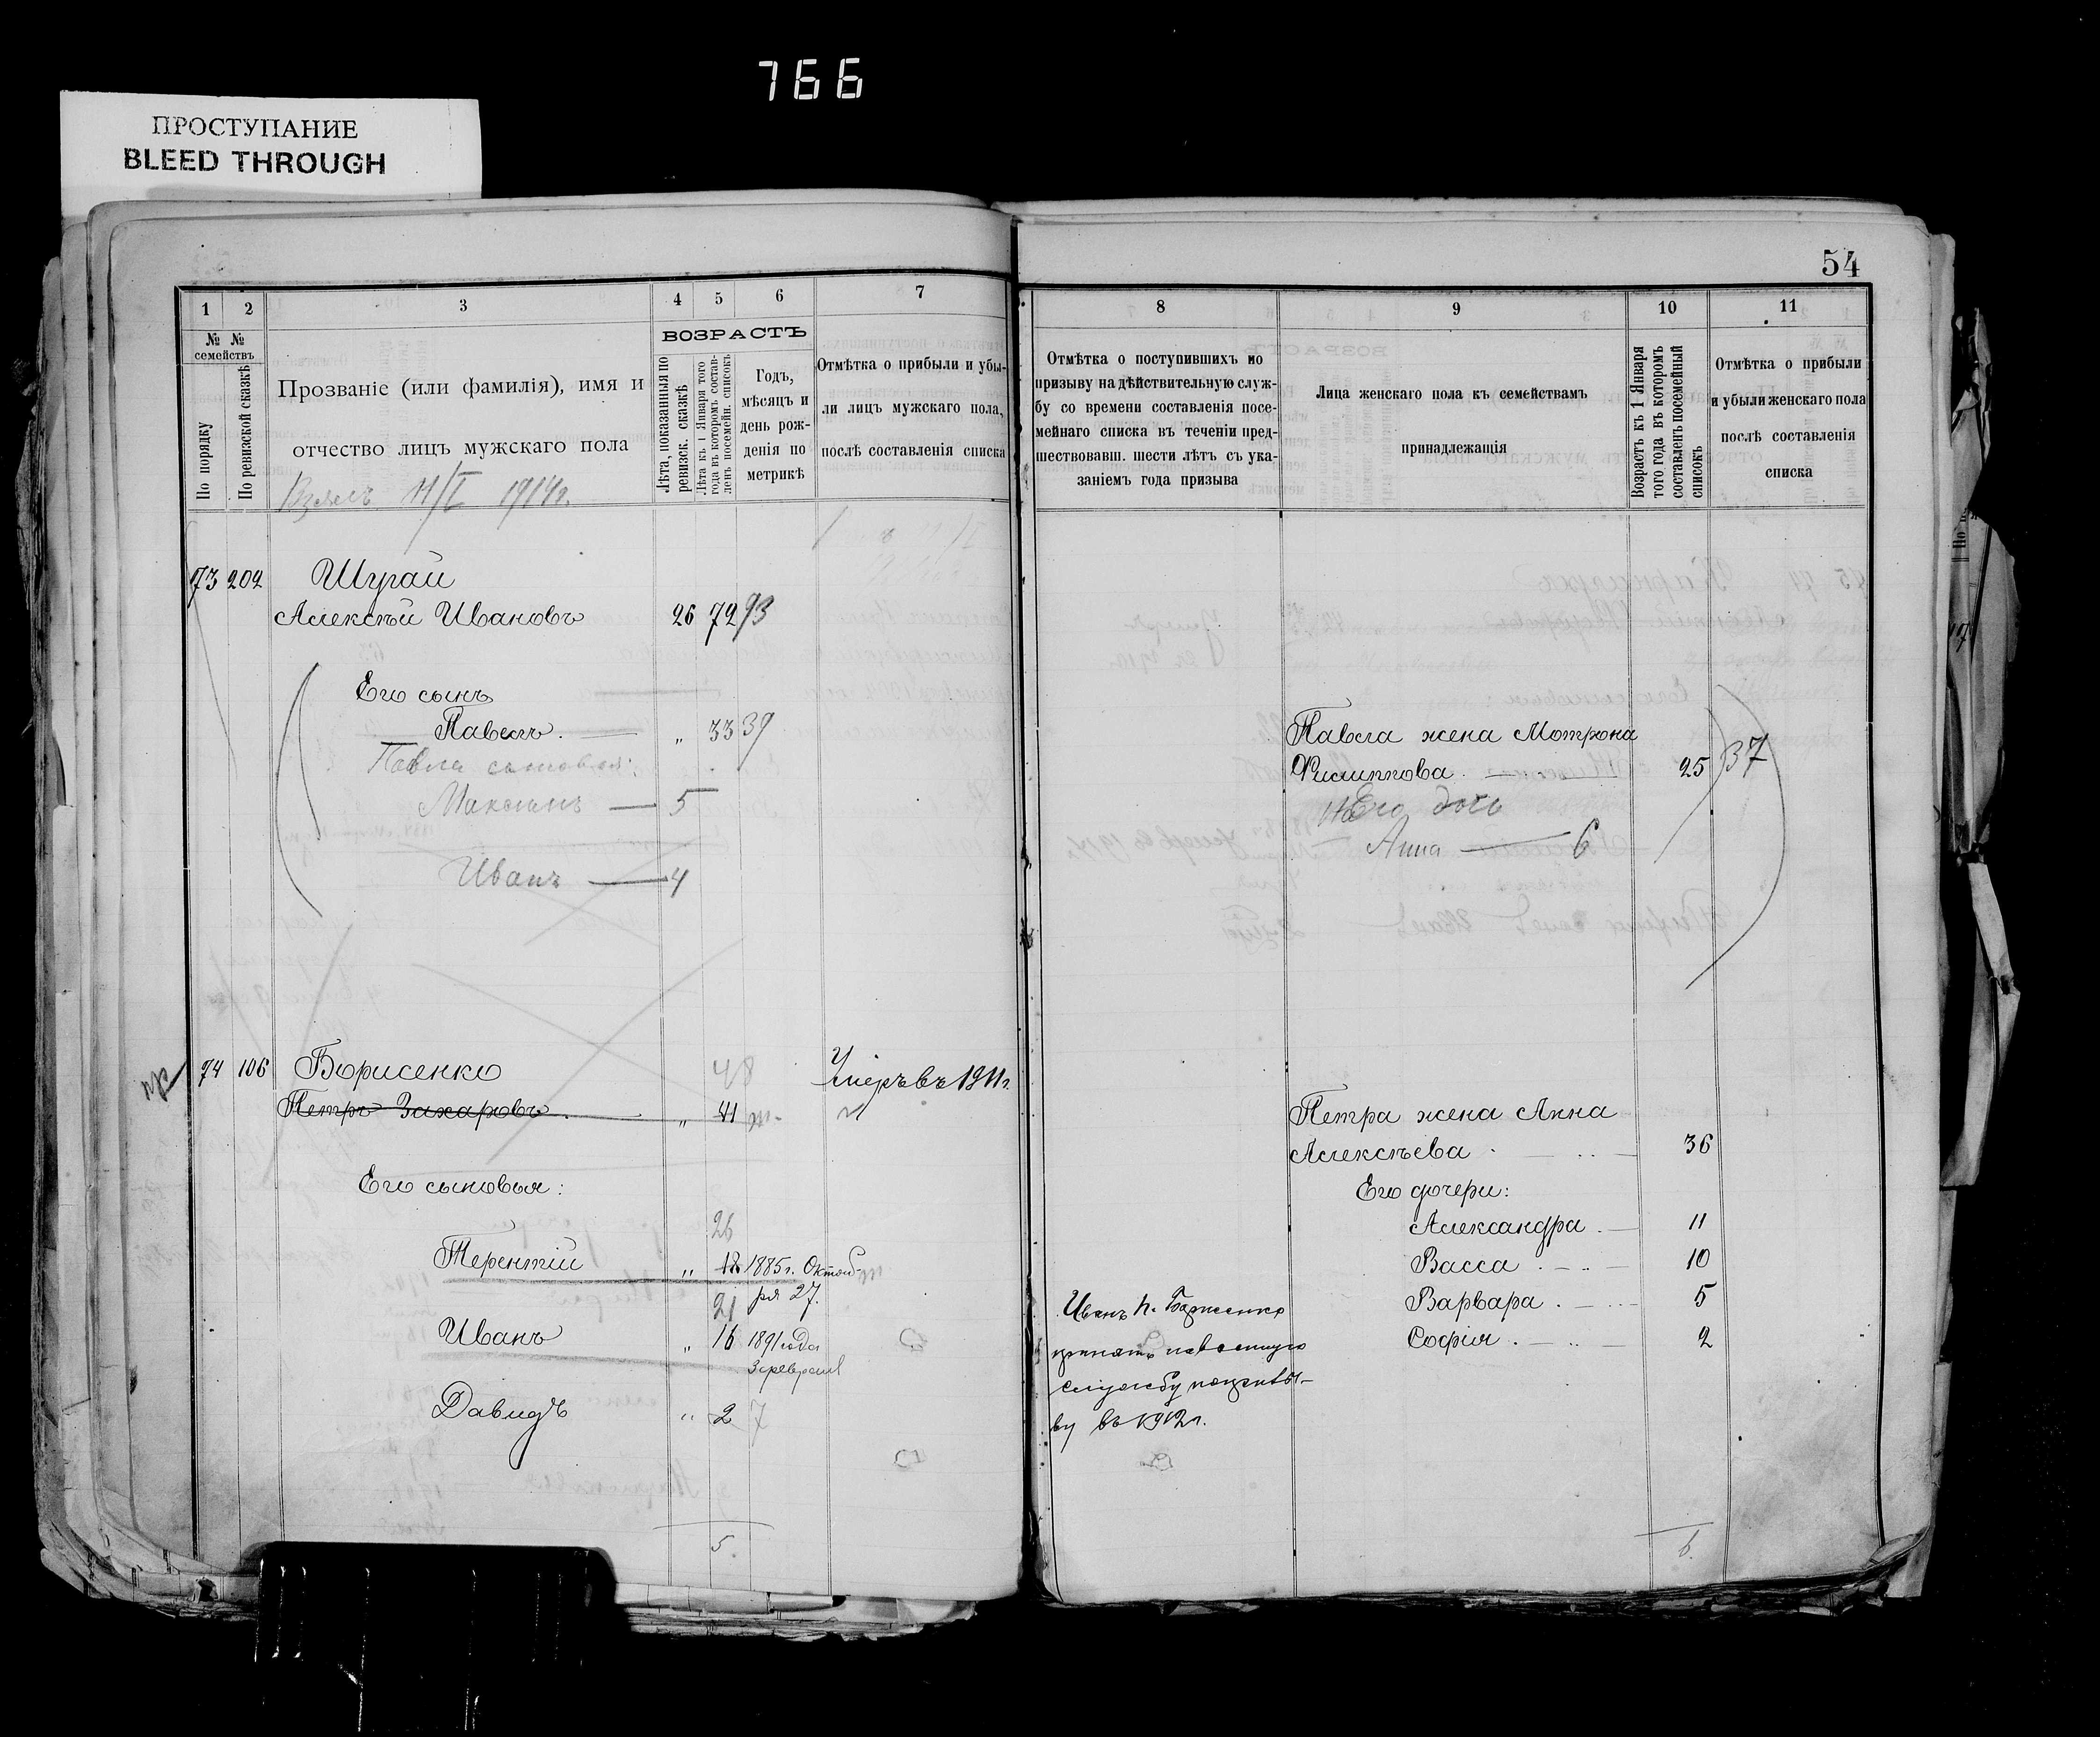 766
ПРОСТУПАНИЕ
BLEED THROUGH
54
1 2 3 4 5 6 7
№ № семействъ
По порядку
По ревизской сказкѣ
Прозваніе (или фамилія), имя и
отчество лицъ мужскаго пола
ВОЗРАСТЪ
Лѣта, показанныя по
ревизск. сказкѣ
Лѣта къ 1 Января того
года въ которомъ состав-
ленъ посемейн. списокъ
Годъ,
мѣсяцъ и
день рож-
денія по
метрикѣ
Отмѣтка о прибыли и убы-
ли лицъ мужскаго пола,
послѣ составленія списка
11/I 1914г.
73 202 Шугай
Алексѣй Ивановъ 26 72 73
Его сынъ
Павелъ. „ 33 39
Павла сыновья:
Максимъ — 5
Иванъ — 4
74 106 Борисенко 48 Умеръ въ 1911г.
Петръ Захаровъ. „ 41
Его сыновья:
26
Терентій „ 18 1885г. Октяб-
ря 27.
21
Иванъ „ 16 1891 года
3 февраля
Давидъ „ 2 7
5.
8 9 10 11
Отмѣтка о поступившихъ по
призыву на дѣйствительную служ-
бу со времени составленія посе-
мейнаго списка въ теченіи пред-
шествовавш. шести лѣтъ съ ука-
заніемъ года призыва
Лица женскаго пола къ семействамъ
принадлежащія
Возрастъ къ 1 Января
того года въ которомъ
составленъ посемейный
списокъ
Отмѣтка о прибыли
и убыли женскаго пола
послѣ составленія
списка
Павла жена Мотрона
Филиппова. 25 37
Его дочь
Анна — 6
Петра жена Анна
Алексѣева. 36
Его дочери:
Александра. 11
Васса. 10
Варвара. 5
Софія. 2
Иванъ П. Борисенко
принятъ на военную
службу по призы-
ву въ 1912г.
6.